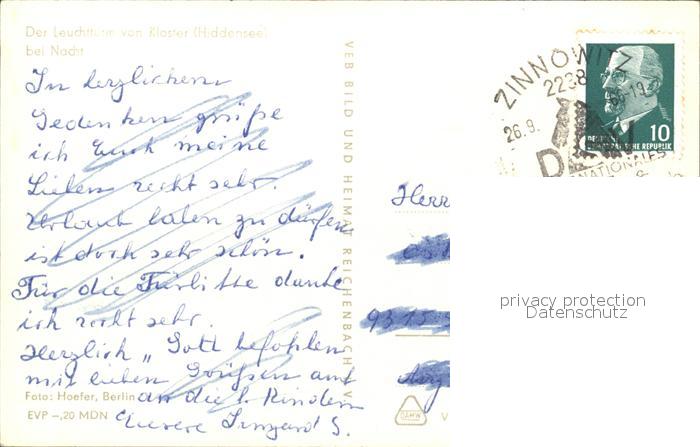 Der Leuchtturm von Kloster (Hiddensee)
bei Nacht
In herzlichem
Gedenken grüße
ich Euch meine
Lieben recht sehr.
Urlaub haben zu dürfen
ist doch sehr schön.
Für die Fürbitte danke
ich recht sehr.
Herzlich „ Gott befohlen
mit lieben Grüßen auch
an die l. Kinder
Eure Irmgard S.
Foto: Hoefer, Berlin
EVP –,20 MDN
VEB BILD UND HEIMAT REICHENBACH I. V.
ZINNOWITZ
2238
26.9.
NATIONALES
10
DEUTSCHE
DEMOKRATISCHE REPUBLIK
Herr
privacy protection
Datenschutz
V